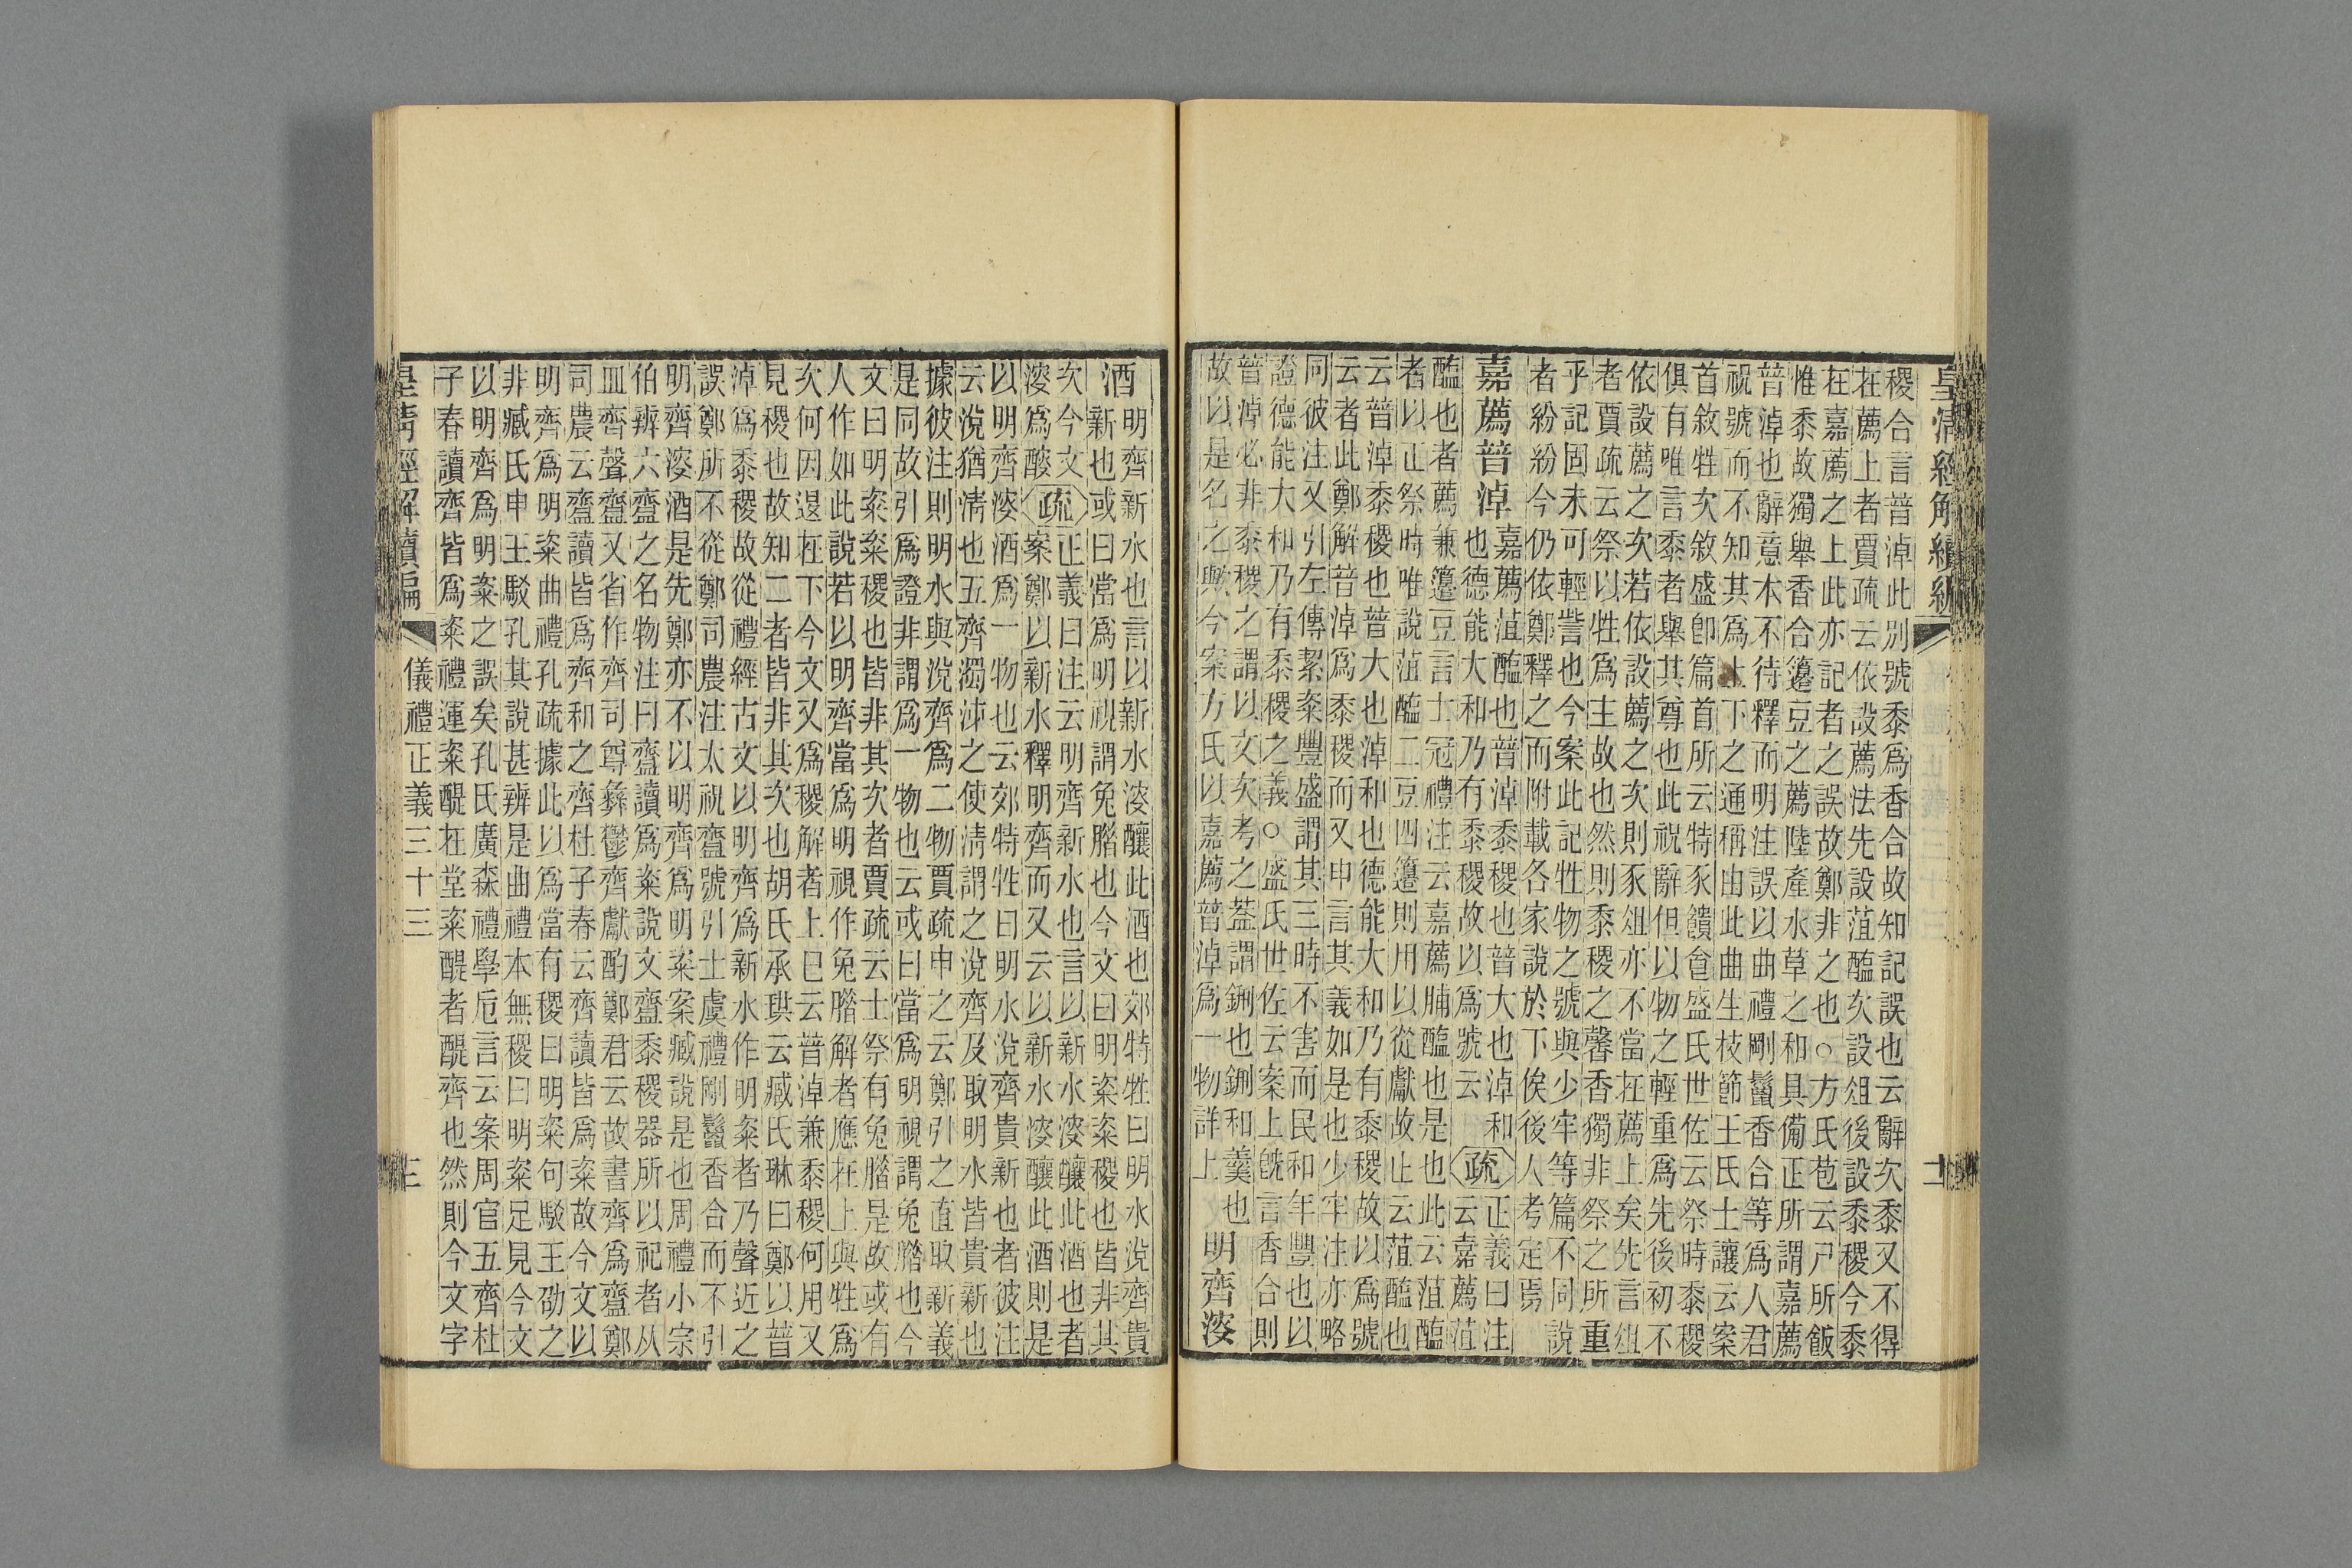 皇清經解續編 二
稷合言普淖此別號黍爲香合故知記誤也云辭次黍又不得
在薦上者賈疏云依設薦法先設菹醢次設俎後設黍稷今黍
在嘉薦之上此亦記者之誤故鄭非之也○方氏苞云尸所飯
惟黍故獨舉香合籩豆之薦陸產水草之和具備正所謂嘉薦
普淖也辭意本不待釋而明注誤以曲禮剛鬣香合等爲人君
祝號而不知其爲上下之通稱由此曲生枝節王氏士讓云案
首敘牲次敘盛卽篇首所云特豕饋食盛氏世佐云祭時黍稷
俱有唯言黍者舉其尊也此祝辭但以物之輕重爲先後初不
依設薦之次若依設薦之次則豕俎亦不當在薦上矣先言俎
者賈疏云祭以牲爲主故也然則黍稷之馨香獨非祭之所重
乎記固未可輕訾也今案此記牲物之號與少牢等篇不同說
者紛紛今仍依鄭釋之而附載各家說於下俟後人考定焉
嘉薦普淖
嘉薦菹醢也普淖黍稷也普大也淖和
也德能大和乃有黍稷故以爲號云
疏
正義曰注
云嘉薦菹
醢也者薦兼籩豆言士冠禮注云嘉薦脯醢也是也此云菹醢
者以正祭時唯說菹醢二豆四籩則用以從獻故止云菹醢也
云普淖黍稷也普大也淖和也德能大和乃有黍稷故以爲號
云者此鄭解普淖爲黍稷而又申言其義如是也少牢注亦略
同彼注又引左傳絜粢豐盛謂其三時不害而民和年豐也以
證德能大和乃有黍稷之義○盛氏世佐云案上旣言香合則
普淖必非黍稷之謂以文次考之葢謂鉶也鉶和羹也
故以是名之與今案方氏以嘉薦普淖爲一物詳上
明齊溲
酒
明齊新水也言以新水溲釀此酒也郊特牲曰明水涗齊貴
新也或曰當爲明視謂兔腊也今文曰明粢粢稷也皆非其
次今文
溲爲醙
疏
正義曰注云明齊新水也言以新水溲釀此酒也者
案鄭以新水釋明齊而又云以新水溲釀此酒則是
以明齊溲酒爲一物也云郊特牲曰明水涗齊貴新也者彼注
云涗猶清也五齊濁泲之使清謂之涗齊及取明水皆貴新也
據彼注則明水與涗齊爲二物賈疏申之云鄭引之直取新義
是同故引爲證非謂爲一物也云或曰當爲明視謂兔腊也今
文曰明粢粢稷也皆非其次者賈疏云士祭有兔腊是故或有
人作如此說若以明齊當爲明視作兔腊解者應在上與牲爲
次何因退在下今文又爲稷解者上已云普淖兼黍稷何用又
見稷也故知二者皆非其次也胡氏承珙云臧氏琳曰鄭以普
淖爲黍稷故從禮經古文以明齊爲新水作明粢者乃聲近之
誤鄭所不從鄭司農注太祝齍號引士虞禮剛鬣香合而不引
明齊溲酒是先鄭亦不以明齊爲明粢案臧說是也周禮小宗
伯辨六齍之名物注曰齍讀爲粢說文齍黍稷器所以祀者从
皿齊聲齍又省作齊司尊彝鬱齊獻酌鄭君云故書齊爲齍鄭
司農云齍讀皆爲齊和之齊杜子春云齊讀皆爲粢故今文以
明齊爲明粢曲禮孔疏據此以爲當有稷曰明粢句駁王劭之
非臧氏申王駁孔其說甚辨是曲禮本無稷曰明粢足見今文
以明齊爲明粢之誤矣孔氏廣森禮學卮言云案周官五齊杜
子春讀齊皆爲粢禮運粢醍在堂粢醍者醍齊也然則今文字
皇清經解續編 儀禮正義三十三 三